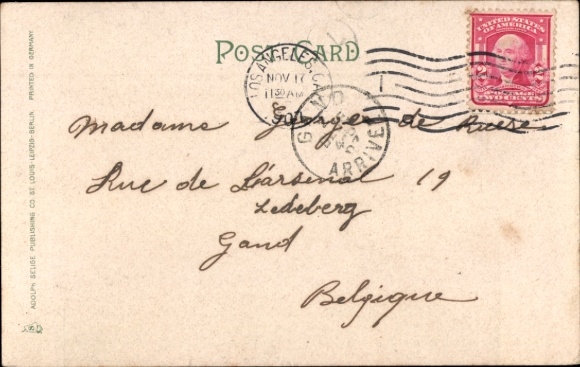 POST CARD
UNITED STATES OF AMERICA
POSTAGE
TWO CENTS
LOS ANGELES, CAL.
NOV 17
1130 AM
GAND
ARRIVE
Madame de
Rue de L'arsenal 19
Ledeberg
Gand
Belgique
ADOLPH SELIGE PUBLISHING CO. ST. LOUIS-LEIPZIG-BERLIN PRINTED IN GERMANY